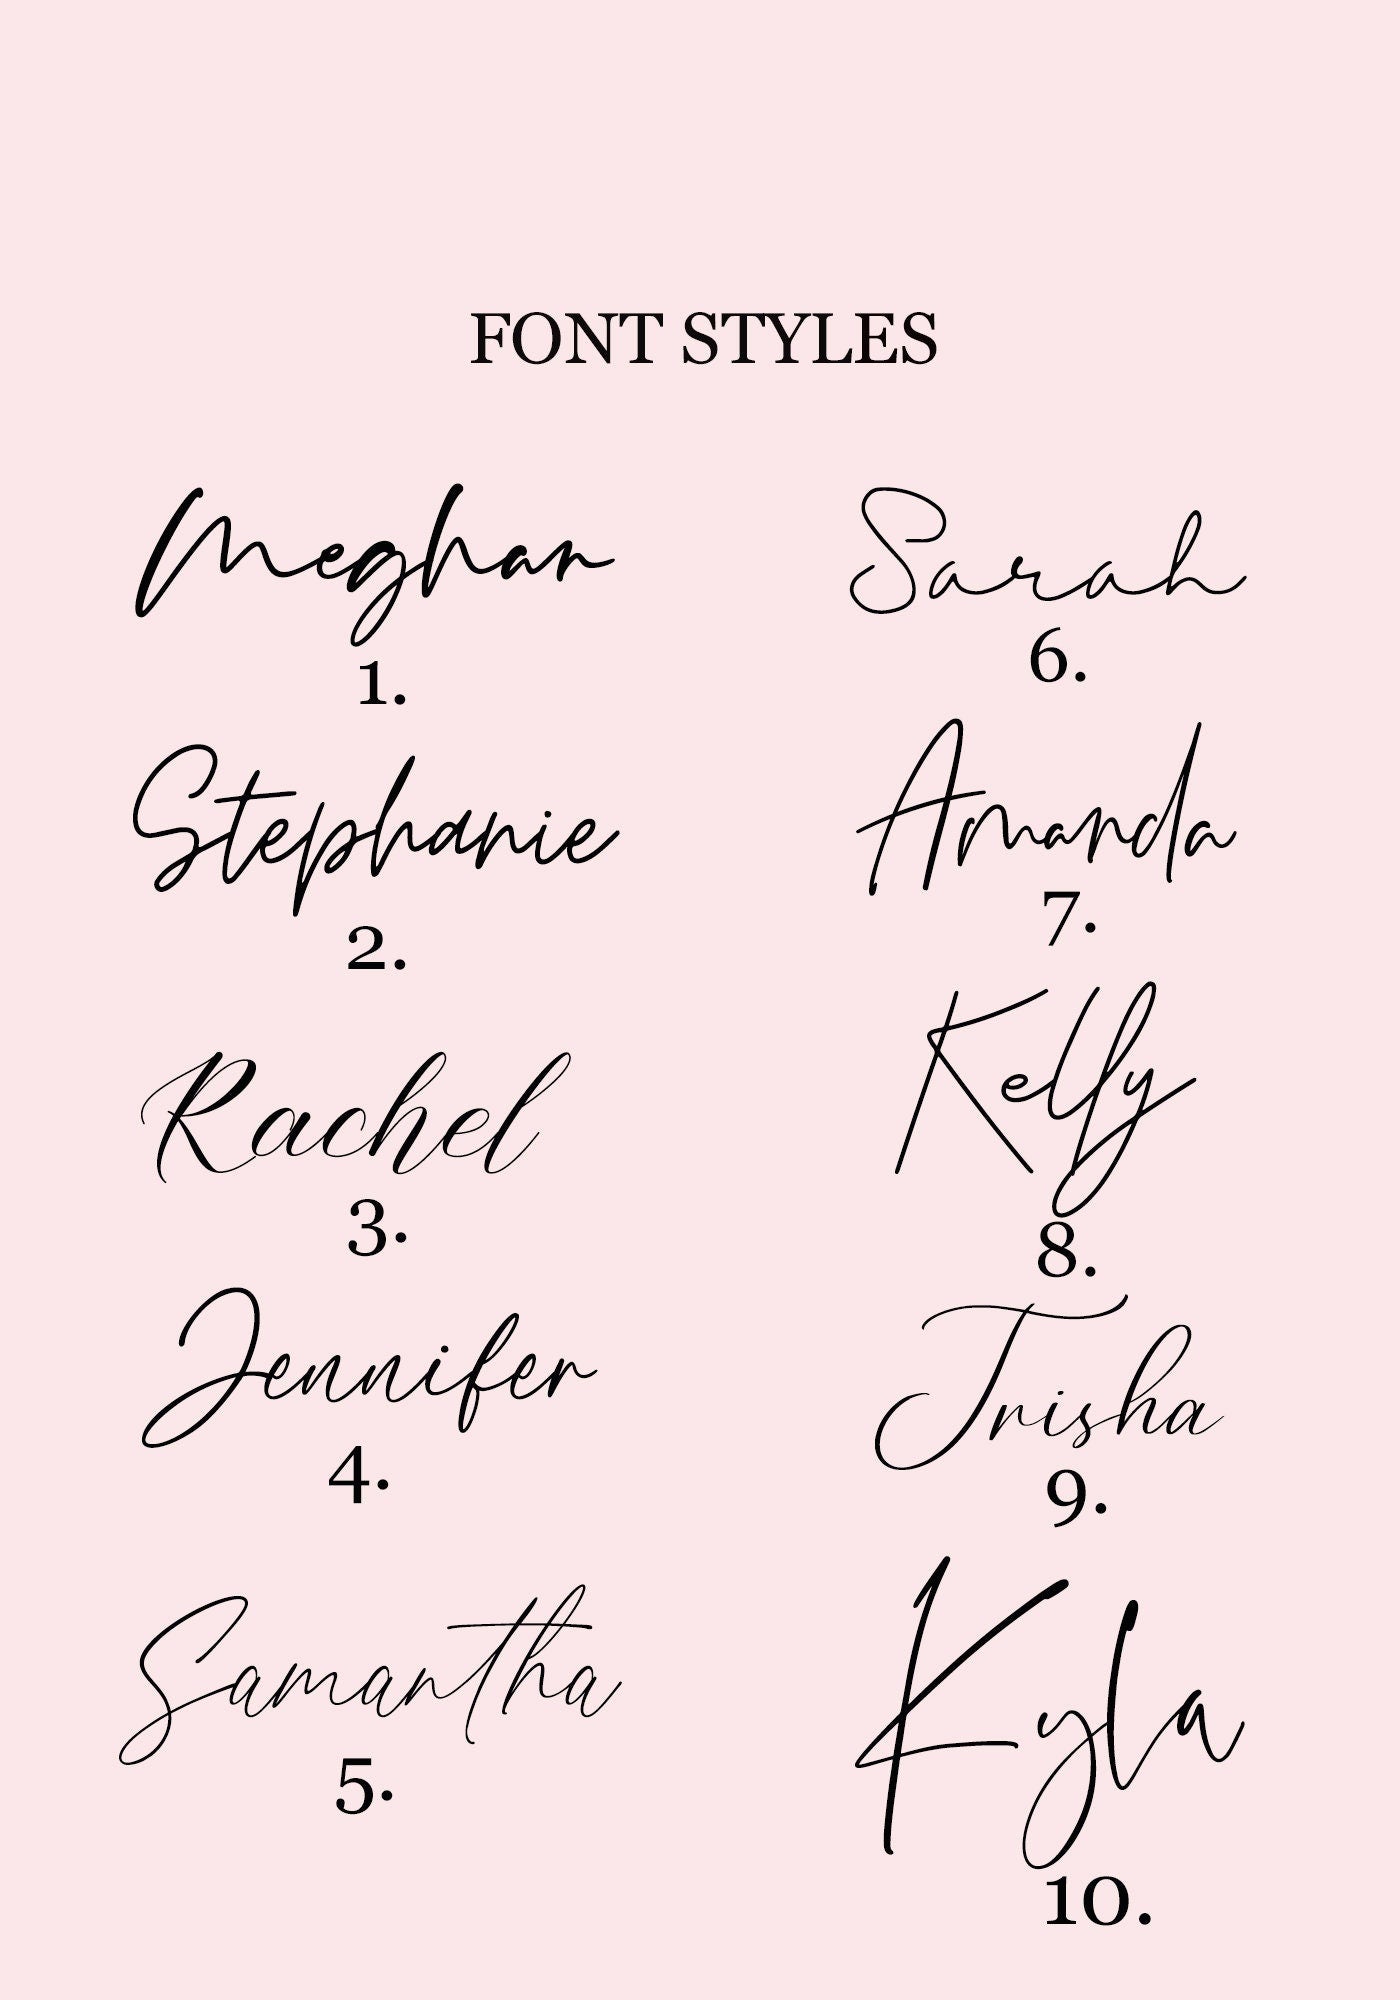 FONT STYLES
Meghan
1.
Stephanie
2.
Rachel
3.
Jennifer
4.
Samantha
5.
Sarah
6.
Amanda
7.
Kelly
8.
Trisha
9.
Kyla
10.